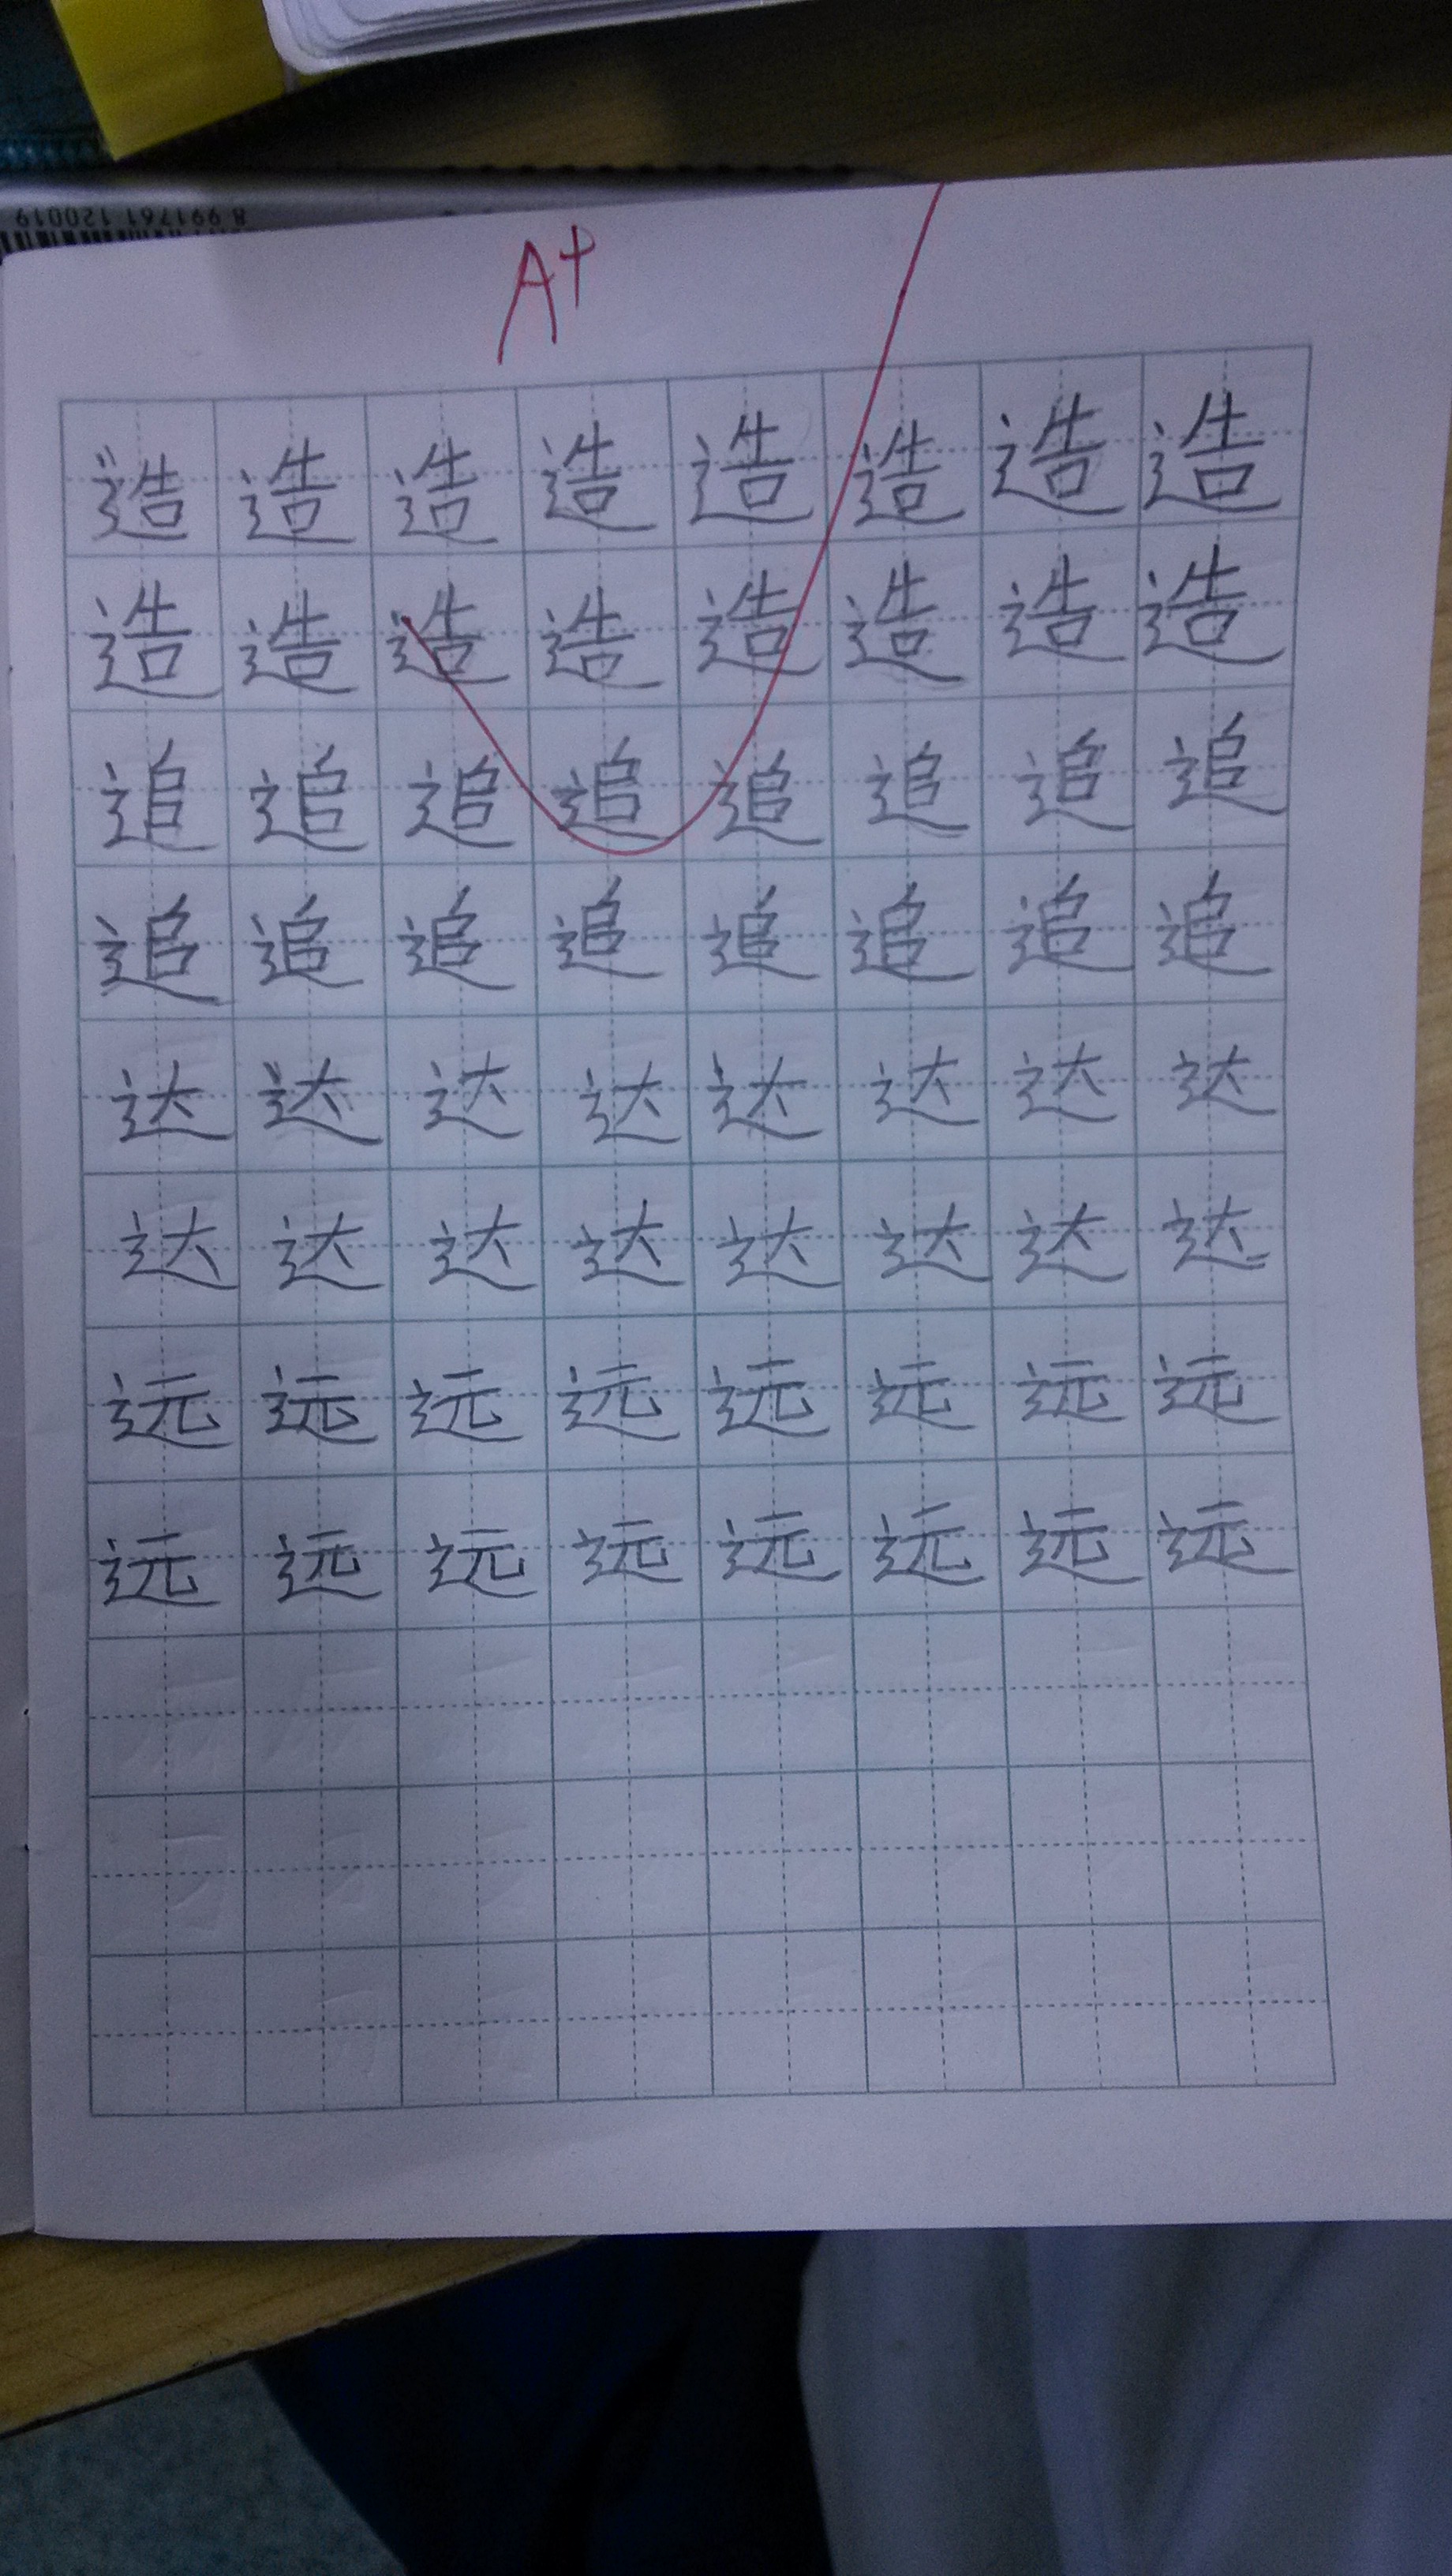 8 991761 120019
A+
造 造 造 造 造 造 造 造
造 造 造 造 造 造 造 造
追 追 追 追 追 追 追 追
追 追 追 追 追 追 追 追
达 达 达 达 达 达 达 达
达 达 达 达 达 达 达 达
远 远 远 远 远 远 远 远
远 远 远 远 远 远 远 远